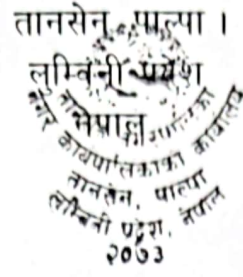 तानसेन, पाल्पा ।
लुम्बिनी प्रदेश
नेपाल
नगर कार्यपालिकाको कार्यालय
तानसेन, पाल्पा
लुम्बिनी प्रदेश, नेपाल
२०७३